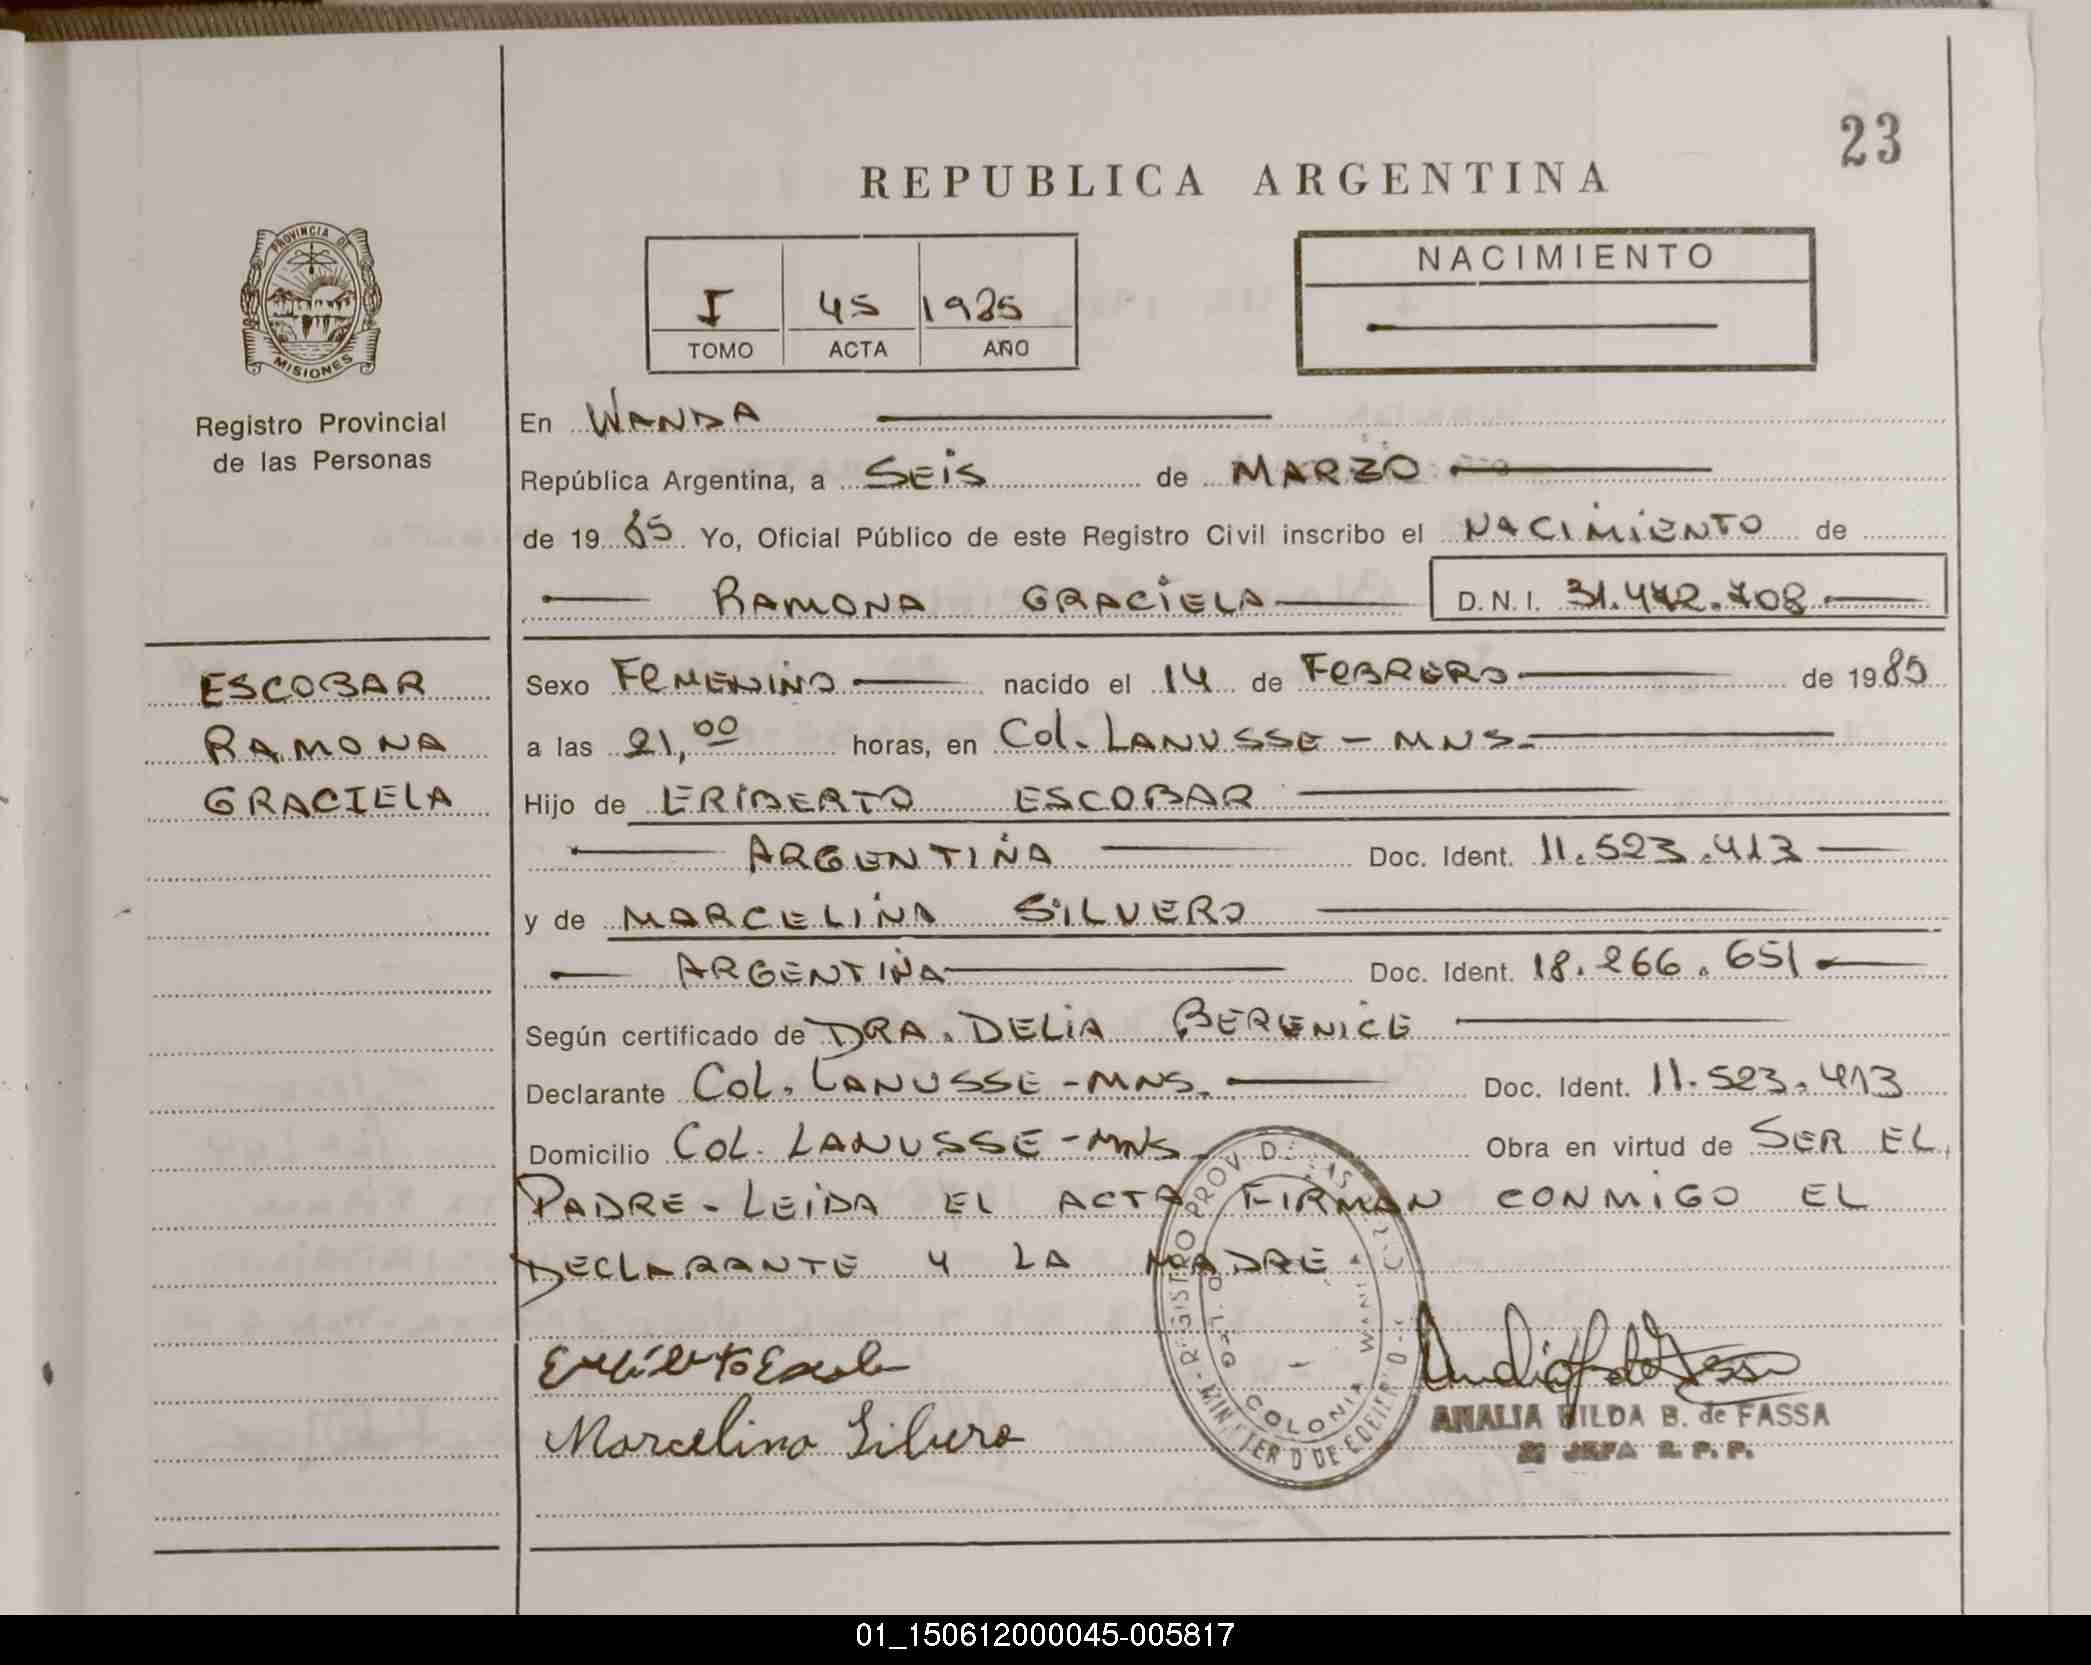 23
REPUBLICA ARGENTINA
PROVINCIA DE
MISIONES
Registro Provincial
de las Personas
I 45 1985
TOMO ACTA AÑO
NACIMIENTO
En WANDA
República Argentina, a SEIS de MARZO
de 1985 Yo, Oficial Público de este Registro Civil inscribo el NACIMIENTO de
RAMONA GRACIELA D.N.I. 31.472.708
ESCOBAR
RAMONA
GRACIELA
Sexo FEMENINO nacido el 14 de FEBRERO de 1985
a las 21,00 horas, en Col. LANUSSE - MNS.
Hijo de ERIBERTO ESCOBAR
ARGENTINA Doc. Ident. 11.523.413
y de MARCELINA SILVERO
ARGENTINA Doc. Ident. 18.266.651
Según certificado de DRA. DELIA BERENICE
Declarante COL. LANUSSE - MNS. Doc. Ident. 11.523.413
Domicilio COL. LANUSSE - MNS. Obra en virtud de SER EL
PADRE - LEIDA EL ACTA FIRMAN CONMIGO EL
DECLARANTE Y LA MADRE.
REGISTRO PROV. DE LAS
COLONIA WANDA
Marcelina Silvero
ANALIA HILDA B. de FASSA
JEFA R. P. P.
01_150612000045-005817